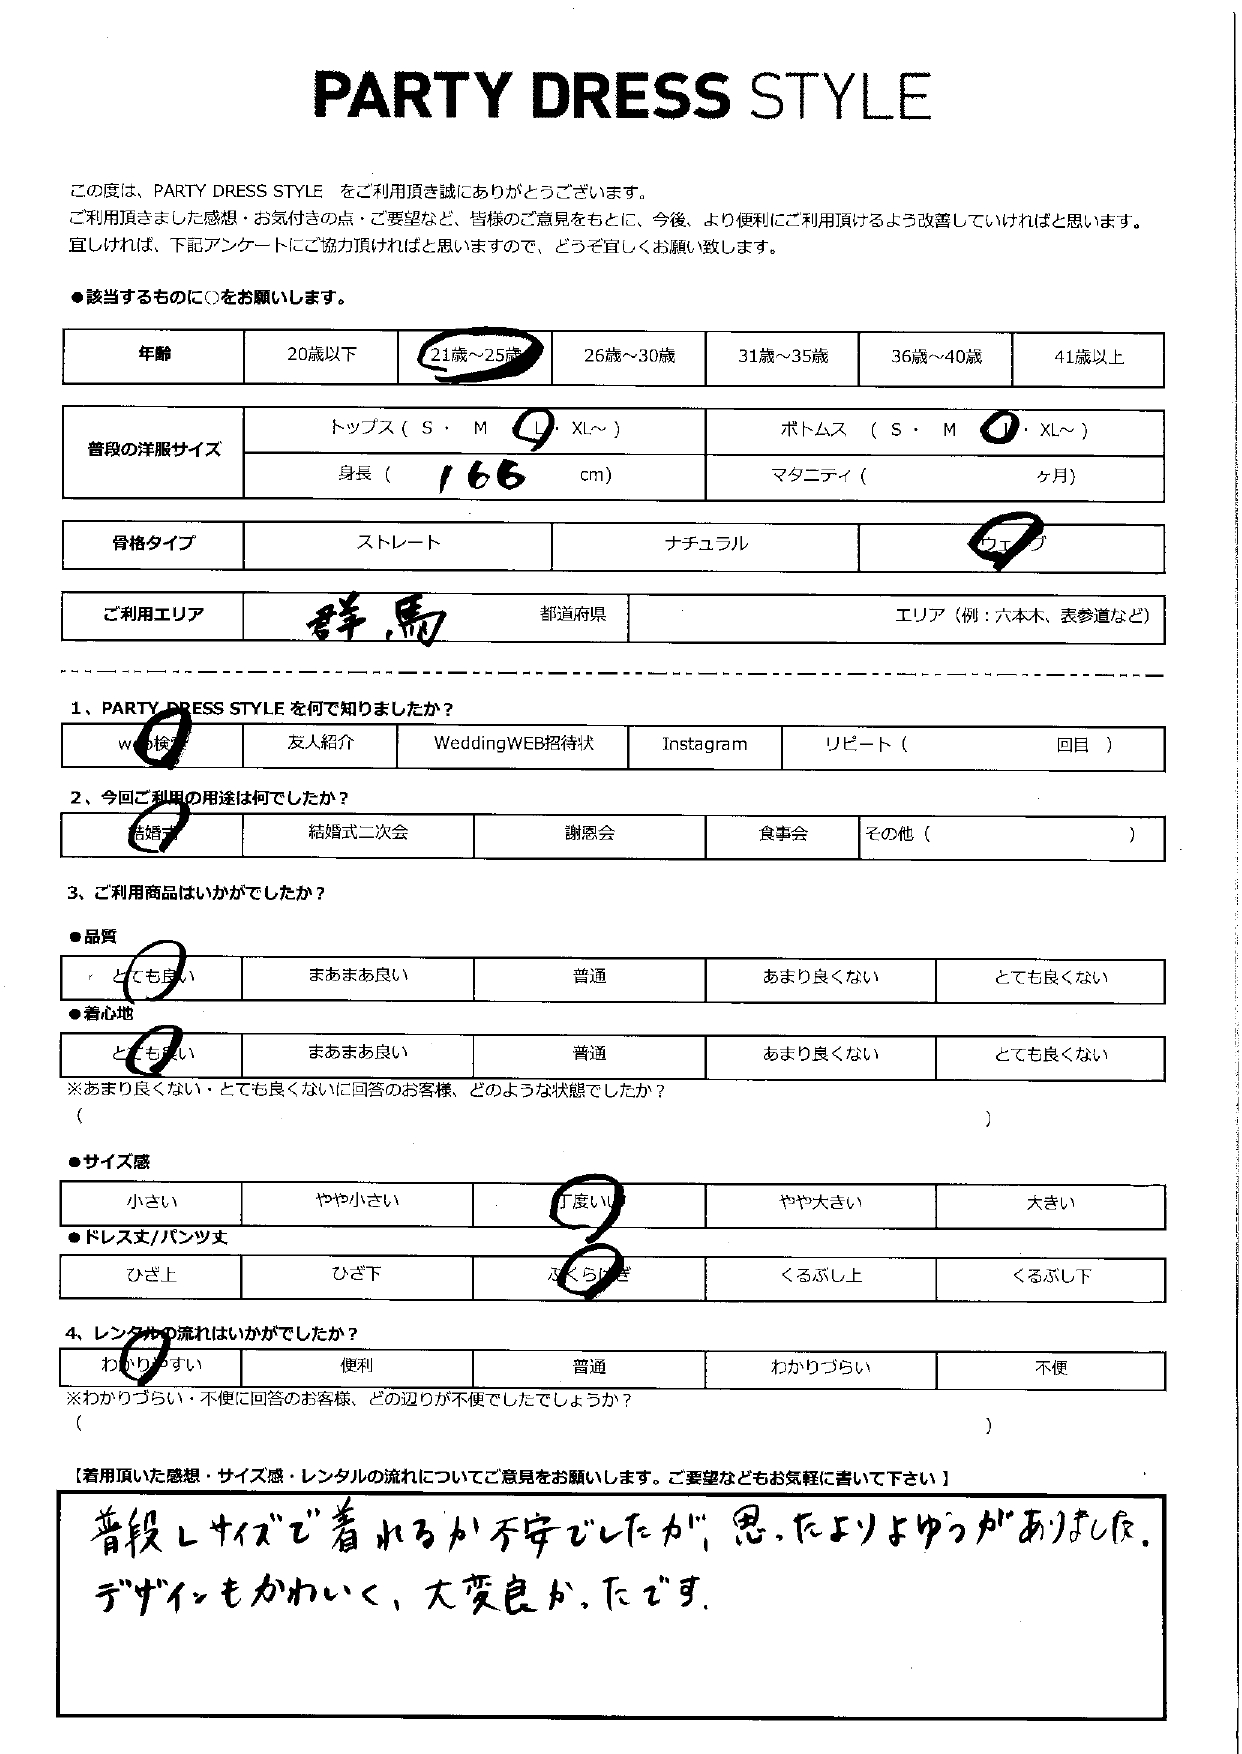 PARTY DRESS STYLE
この度は、PARTY DRESS STYLE をご利用頂き誠にありがとうございます。
ご利用頂きました感想・お気付きの点・ご要望など、皆様のご意見をもとに、今後、より便利にご利用頂けるよう改善していければと思います。
宜しければ、下記アンケートにご協力頂ければと思いますので、どうぞ宜しくお願い致します。
●該当するものに○をお願いします。
年齢 20歳以下 21歳～25歳 26歳～30歳 31歳～35歳 36歳～40歳 41歳以上
普段の洋服サイズ トップス ( S ・ M L ・ XL～ ) ボトムス ( S ・ M L ・ XL～ )
身長 ( 166 cm) マタニティ ( ヶ月)
骨格タイプ ストレート ナチュラル ウェーブ
ご利用エリア 群馬 都道府県 エリア（例：六本木、表参道など）
1、PARTY DRESS STYLE を何で知りましたか？
web検索 友人紹介 WeddingWEB招待状 Instagram リピート ( 回目 )
2、今回ご利用の用途は何でしたか？
結婚式 結婚式二次会 謝恩会 食事会 その他 ( )
3、ご利用商品はいかがでしたか？
●品質
とても良い まあまあ良い 普通 あまり良くない とても良くない
●着心地
とても良い まあまあ良い 普通 あまり良くない とても良くない
※あまり良くない・とても良くないに回答のお客様、どのような状態でしたか？
( )
●サイズ感
小さい やや小さい 丁度いい やや大きい 大きい
●ドレス丈/パンツ丈
ひざ上 ひざ下 ふくらはぎ くるぶし上 くるぶし下
4、レンタルの流れはいかがでしたか？
わかりやすい 便利 普通 わかりづらい 不便
※わかりづらい・不便に回答のお客様、どの辺りが不便でしたでしょうか？
( )
【着用頂いた感想・サイズ感・レンタルの流れについてご意見をお願いします。ご要望などもお気軽に書いて下さい】
普段Lサイズで着れるか不安でしたが、思ったよりよゆうがありました。
デザインもかわいく、大変良かったです。